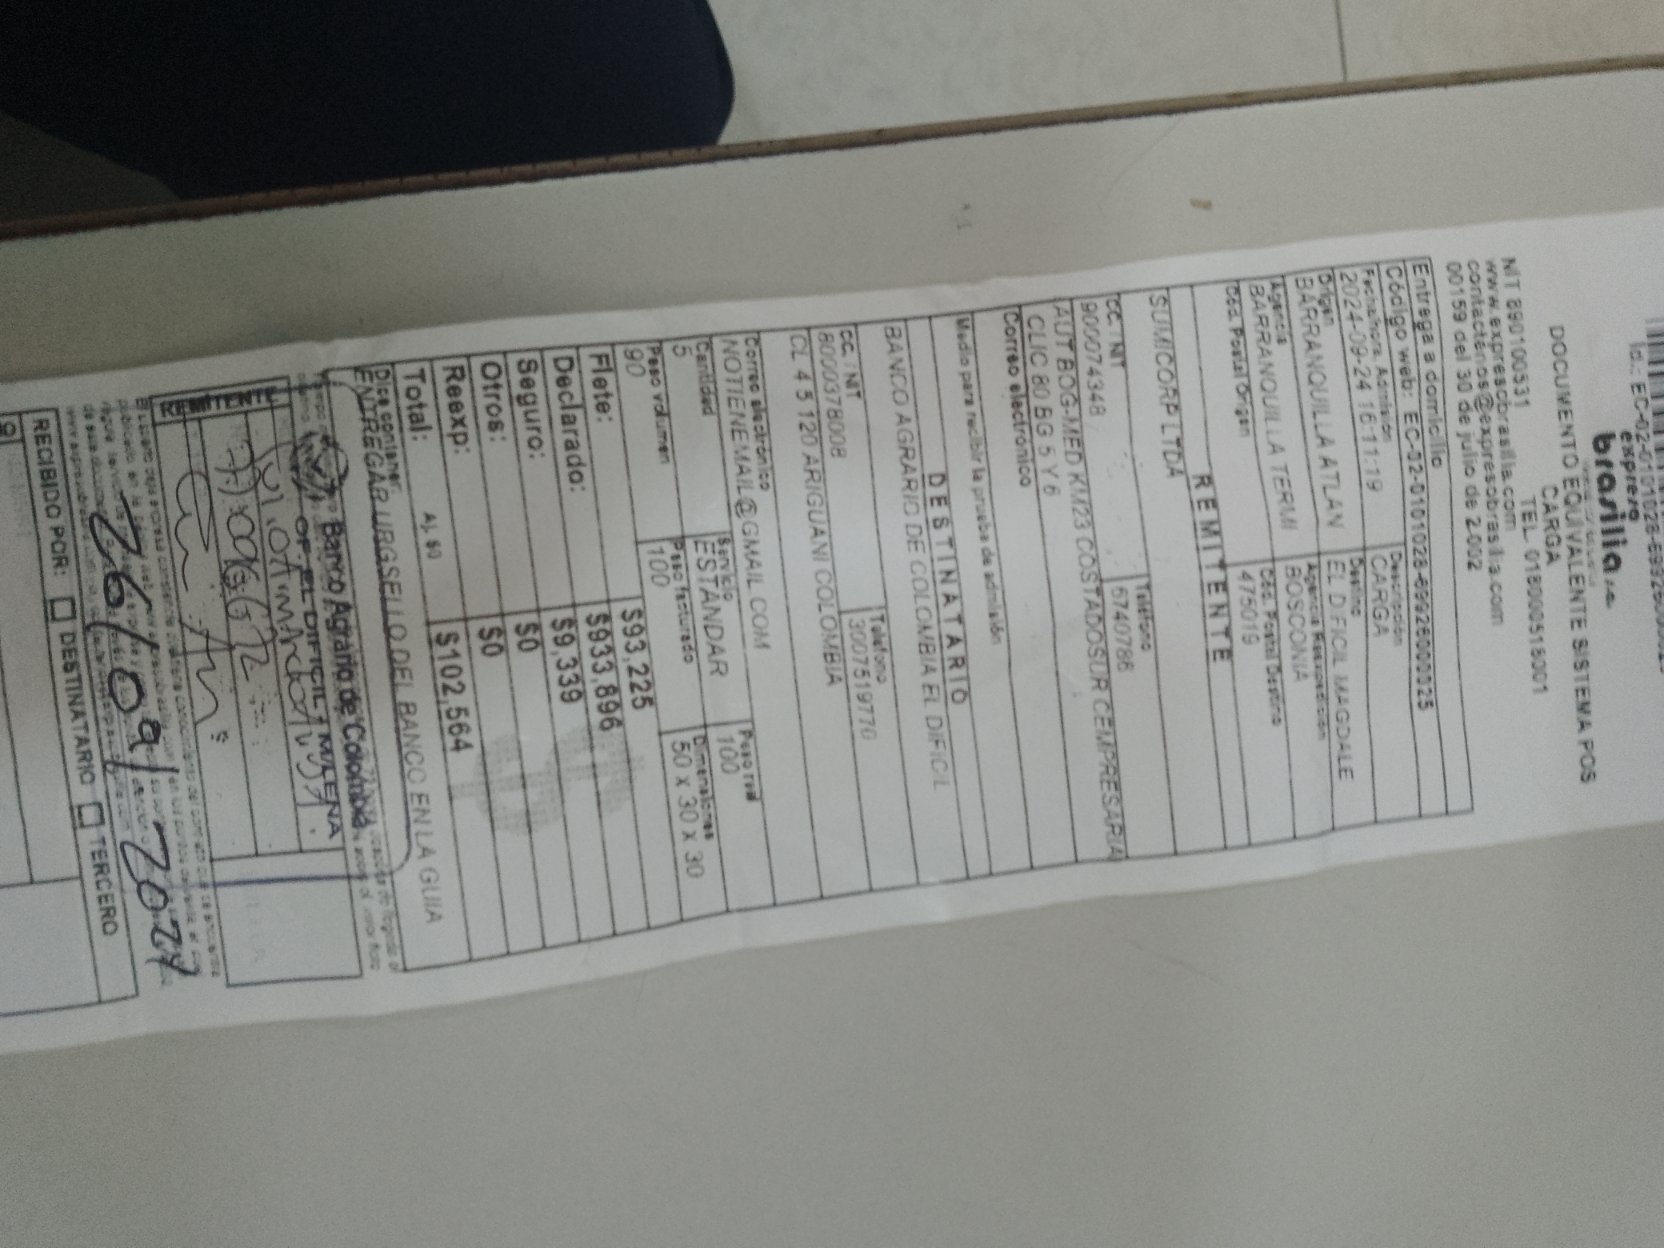 Id.: EC-02-0101028-69926000025
expreso
brasilia s.a.
DOCUMENTO EQUIVALENTE SISTEMA POS
CARGA
TEL. 018000518001
NIT 890100531
www.expresobrasilia.com
contactenos@expresobrasilia.com
00159 del 30 de julio de 2.002
Entrega a domicilio
Código web: EC-02-0101028-69926000025
Fecha/hora Admisión
2024-09-24 16:11:19
Descripción
CARGA
Origen
BARRANQUILLA ATLAN
Destino
EL DIFICIL MAGDALE
Agencia
BARRANQUILLA TERMI
Agencia Reexpedición
BOSCONIA
Cód. Postal Origen
Cód. Postal Destino
475019
REMITENTE
SUMICORP LTDA
CC. / NIT
900074348
Teléfono
6740786
AUT BOG-MED KM23 COSTADOSUR CEMPRESARIA
CLIC 80 BG 5 Y 6
Correo electrónico
Medio para recibir la prueba de admisión
DESTINATARIO
BANCO AGRARIO DE COLOMBIA EL DIFICIL
CC. / NIT
8000378008
Teléfono
3007519770
CL 4 5 120 ARIGUANI COLOMBIA
Correo electrónico
NOTIENEMAIL@GMAIL.COM
Cantidad
5
Servicio
ESTÁNDAR
Peso real
100
Peso volumen
90
Peso facturado
100
Dimensiones
50 x 30 x 30
Flete: $93,225
Declarado: $933,896
Seguro: $9,339
Otros: $0
Reexp: $0
Total: Aj. $0 $102,564
Dice contener:
ENTREGAR URGSELLO DEL BANCO EN LA GUIA
Banco Agrario de Colombia
OF EL DIFICIL / MILENA
REMITENTE
26/09/2024
RECIBIDO POR: DESTINATARIO TERCERO